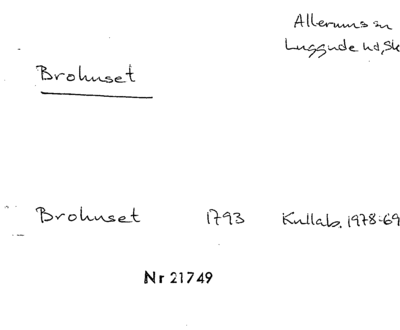 Allerums sn
Luggude hd, Sk
Brohuset
Brohuset 1793 Kullab. 1978:69
Nr 21749